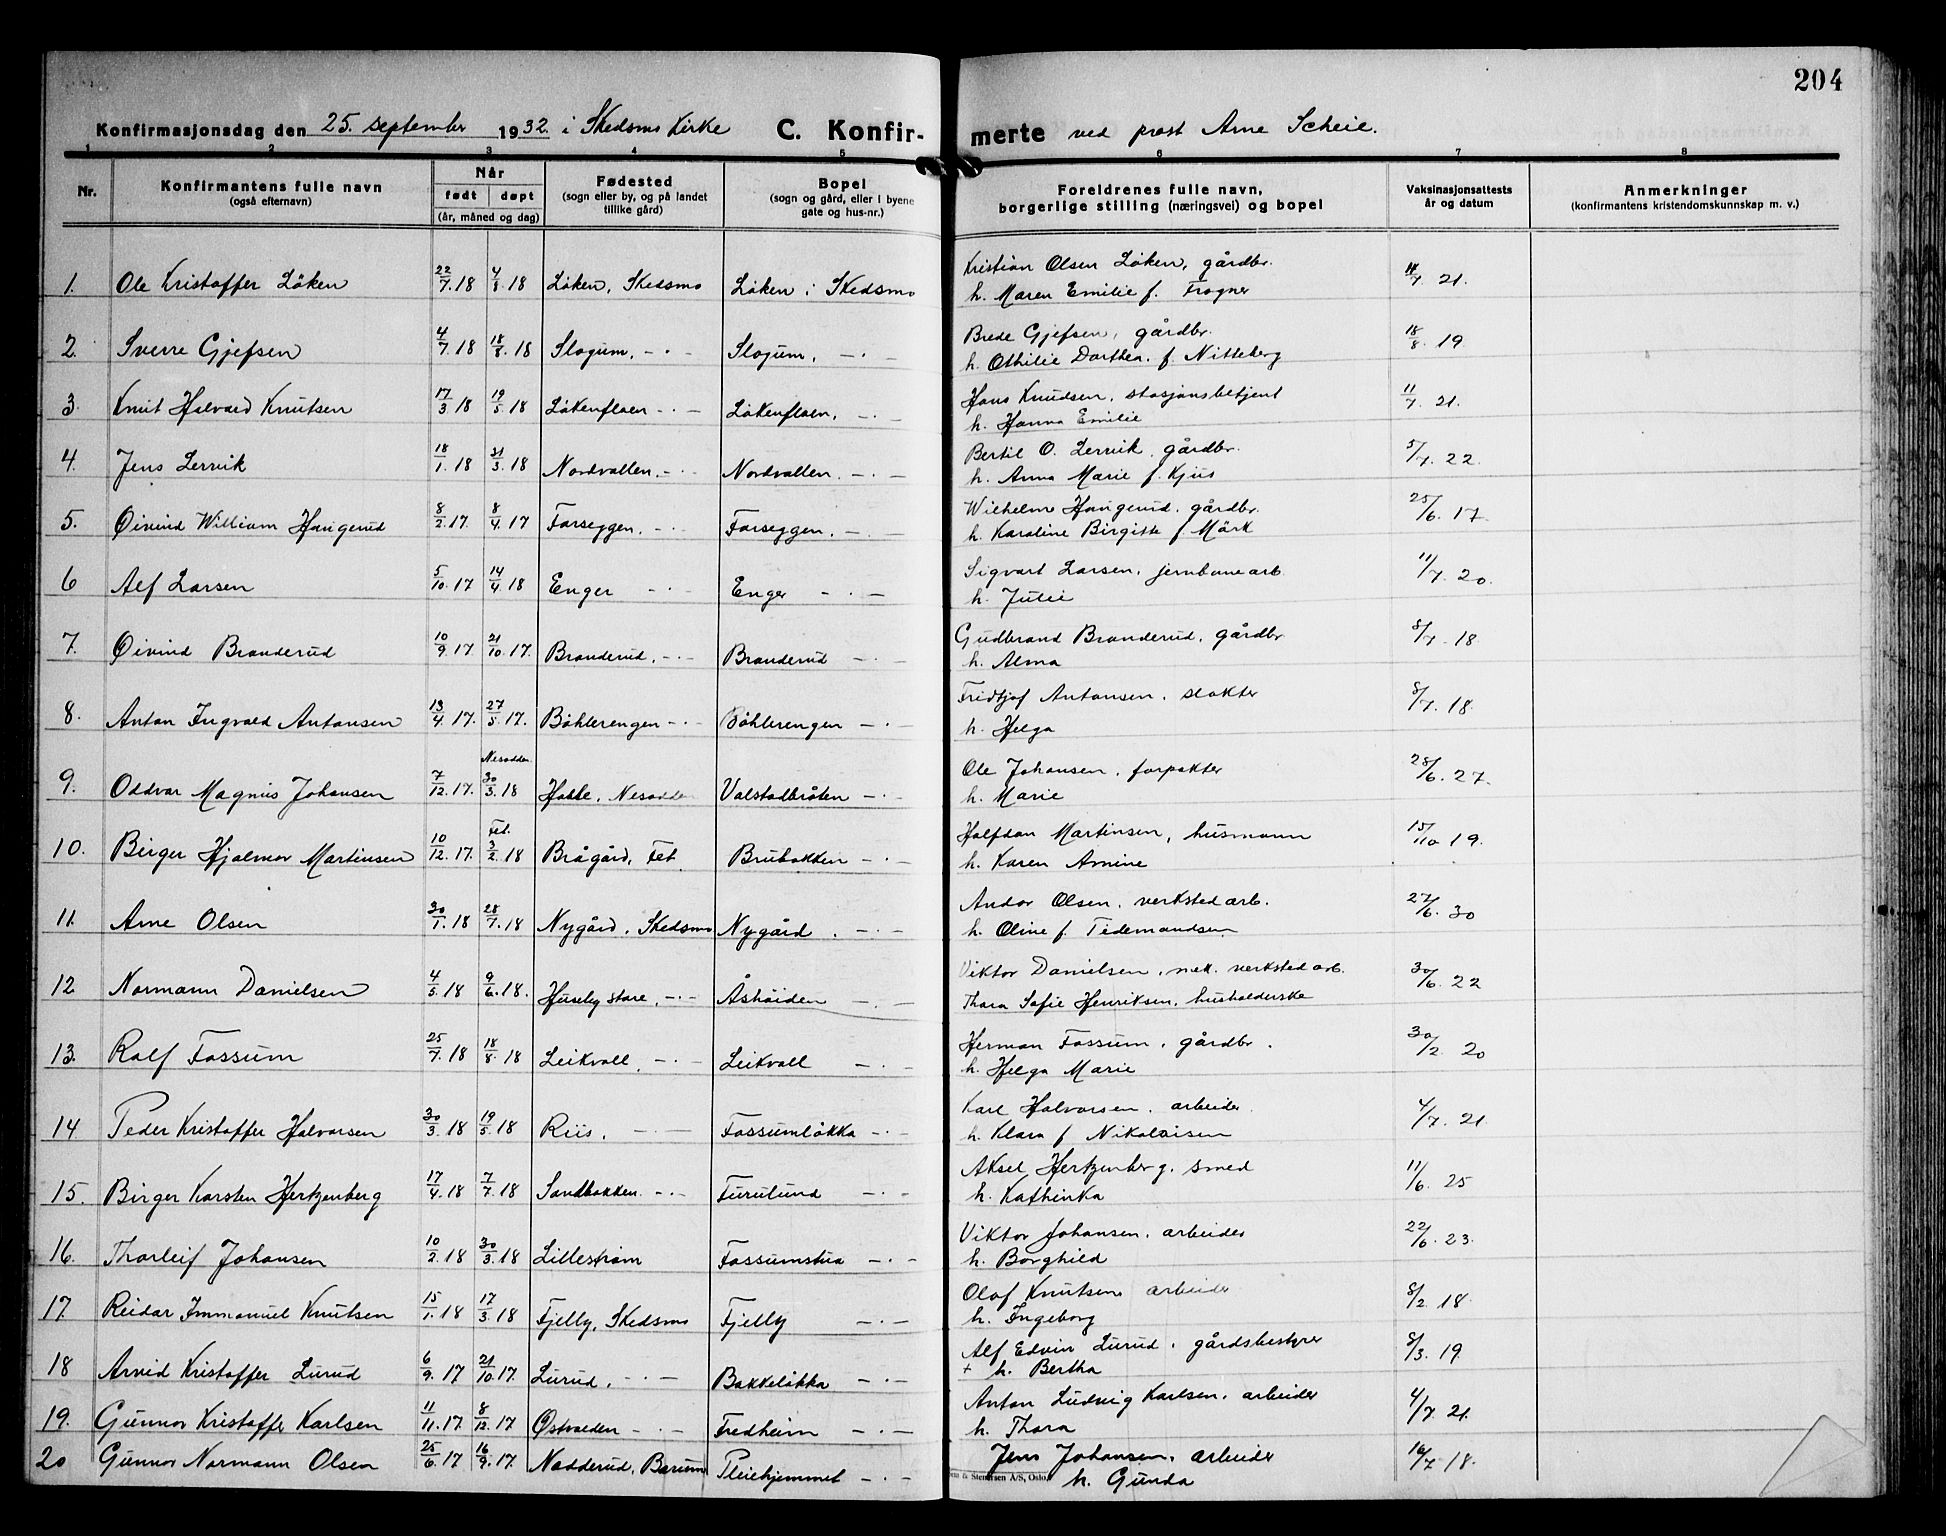 204
Konfirmasjonsdag den 25. september 1932. i Skedsmo Kirke C. Konfir- merte ved prost Arne Scheie.
1 2 3 4 5 6 7 8
Nr. Konfirmantens fulle navn (også efternavn) Når født døpt (år, måned og dag) Fødested (sogn eller by, og på landet tillike gård) Bopel (sogn og gård, eller i byene gate og hus-nr.) Foreldrenes fulle navn, borgerlige stilling (næringsvei) og bopel Vaksinasjonsattests år og datum Anmerkninger (konfirmantens kristendomskunnskap m. v.)
1. Ole Kristoffer Löken 22/7. 18 4/8. 18 Löken, Skedsmo Löken i Skedsmo Kristian Olsen Löken, gårdbr. 11/7. 21.
h. Maren Emilie f. Frogner
2. Sverre Gjefsen 4/7. 18 18/8. 18 Slogum, - " - Slogum, - " - Brede Gjefsen, gårdbr. 18/8. 19
h. Othilie Dorthea. f. Nitteberg
3. Knut Halvard Knutsen 17/3. 18 19/5. 18 Lökenflaen - " - Lökenflaen, - " - Hans Knudsen, stasjonsbetjent 11/7. 21.
h. Hanna Emilie
4. Jens Lervik 18/1. 18 31/3. 18 Nordvollen. - " - Nordvollen. - " - Bertil O. Lervik, gårdbr. 5/7. 22.
h. Anna Marie f. Kjus
5. Öivind William Haugerud 8/2. 17. 8/4. 17 Farseggen. - " - Farseggen. - " - Wilhelm Haugerud, gårdbr. 25/6. 17.
h. Karoline Birgitte f. Mörk
6 Alf Larsen 5/10. 17 14/4. 18 Enger - " - Enger - " - Sigvart Larsen, jernbanearb. 11/7. 20.
h. Julie
7. Öivind Branderud 10/9. 17. 21/10. 17. Branderud. - " - Branderud - " - Gudbrand Branderud, gårdbr 8/7. 18
h. Alma
8. Anton Ingvald Antonsen 13/4. 17. 27/5. 17. Böhlerengen - " - Böhlerengen - " - Fridtjof Antonsen, slakter 8/7. 18.
h. Helga
9. Oddvar Magnus Johansen 7/12. 17. Nesodden 30/3. 18 Nesodden Valstadbråten - " - Ole Johansen, forpakter 28/6. 27.
h. Marie
10. Birger Hjalmar Martinsen 10/12. 17. Fet. 3/2. 18 Brågård, Fet Brubakken - " - Halfdan Martinsen, husmann 15/10 19.
h. Karen Amine
11. Arne Olsen 30/1. 18 28/7. 18 Nygård, Skedsmo Nygård. - " - Andor Olsen, verksted arb. 27/6. 30
h. Oline f. Tidemandsen
12. Normann Danielsen 4/5. 18 9/6. 18. Huseby store, - " - Åshöiden - " - Viktor Danielsen, mek. verksted arb. 30/6. 22
Thora Sofie Henriksen, husholderske
13. Rolf Fossum 25/7. 18 18/8. 18 Leikvoll. - " - Leikvoll - " - Herman Fossum, gårdbr. 30/2. 20
h. Helga Marie
14 Peder Kristoffer Halvorsen 30/3. 18 19/5. 18 Riis. - " - Fossumlökka - " - Karl Halvorsen, arbeider. 4/7. 21.
h. Klara f. Nikolaisen
15. Birger Karsten Hertzenberg 17/4. 18 7/7. 18 Sandbakken. - " - Furulund - " - Aksel Hertzenberg, smed 11/6. 25
h. Kathinka
16. Thorleif Johansen 10/2. 18 30/3. 18 Lilleström Fossumstua - " - Viktor Johansen, arbeider 22/6. 23.
h. Borghild
17. Reidar Immanuel Knutsen 15/1. 18 17/3. 18 Fjelly, Skedsmo Fjelly - " - Olaf Knutsen arbeider 8/2. 18.
h. Ingeborg
18 Arvid Kristoffer Lurud 6/9. 17 21/10. 17. Lurud. - " - Bakkelökka - " - Alf Edvin Lurud, gårdsbestyrer 8/3. 19.
+ h. Bertha
19. Gunnar Kristoffer Karlsen 11/11. 17. 8/12. 17 Östvolden - " - Fredheim - " - Anton Ludvig Karlsen, arbeider 4/7. 21.
h. Thora
20 Gunnar Normann Olsen 25/6. 17 16/9. 17. Nadderud, Bærum Pleiehjemmet - " - Jens Johansen, arbeider 16/7. 18.
& Stenersen A/S, Oslo. h. Gunda